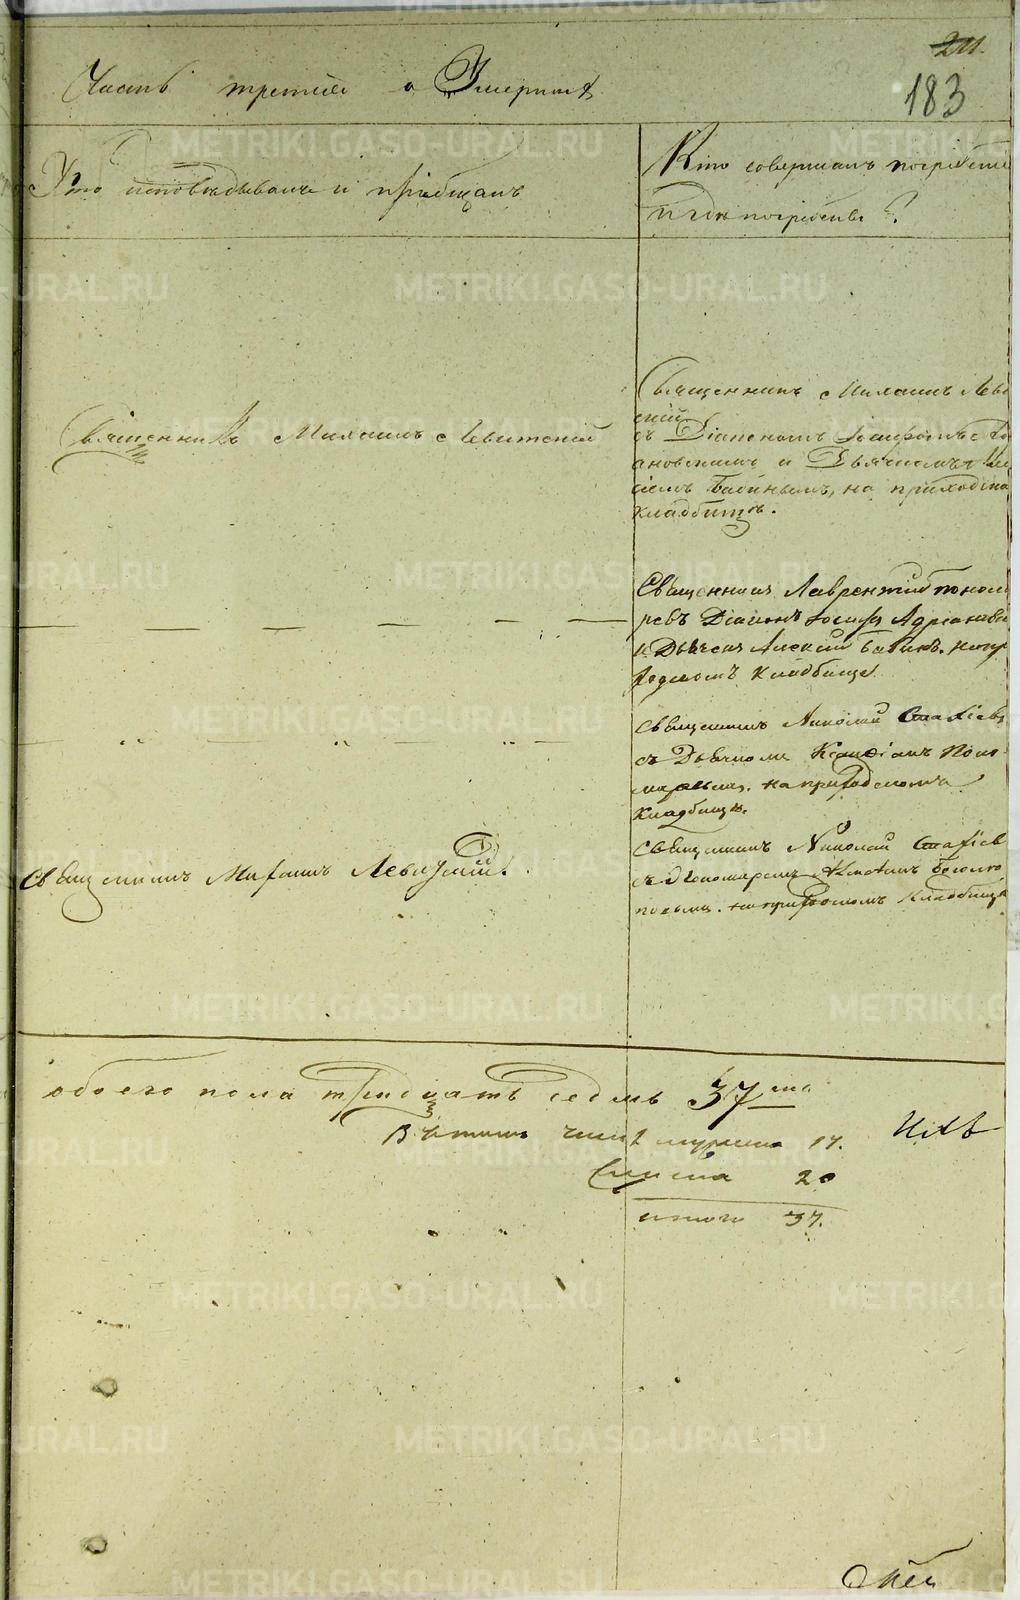 211.
183
Часть третія о Умершихъ
Кто исповѣдывалъ и пріобщалъ
Кто совершалъ погребеніе
и гдѣ погребены?
Священникъ Михаилъ Левитскій
Священникъ Михаилъ Леви
скій
съ Діакономъ Іосифомъ
ановскимъ и Дьячкомъ Але
сіемъ Бабинымъ, на приходскомъ
кладбищѣ.
Священникъ Лаврентий Понома
ревъ Діаконъ Іосифъ Адріановскій
и Дьячекъ Алексий Бабинъ. на при
ходскомъ Кладбище
Священникъ Николай Стахіевъ
съ Дьячкомъ Поно
маревымъ. на приходскомъ
Кладбищѣ.
Священникъ Михаилъ Левитскій.
Священникъ Николай Стахіев
съ Пономаремъ
на приходскомъ Кладбищѣ
обоего пола тридцать седмь 37
Въ томъ числѣ мужеска 17.
Женска 20
итого 37.
METRIKI.GASO-URAL.RU